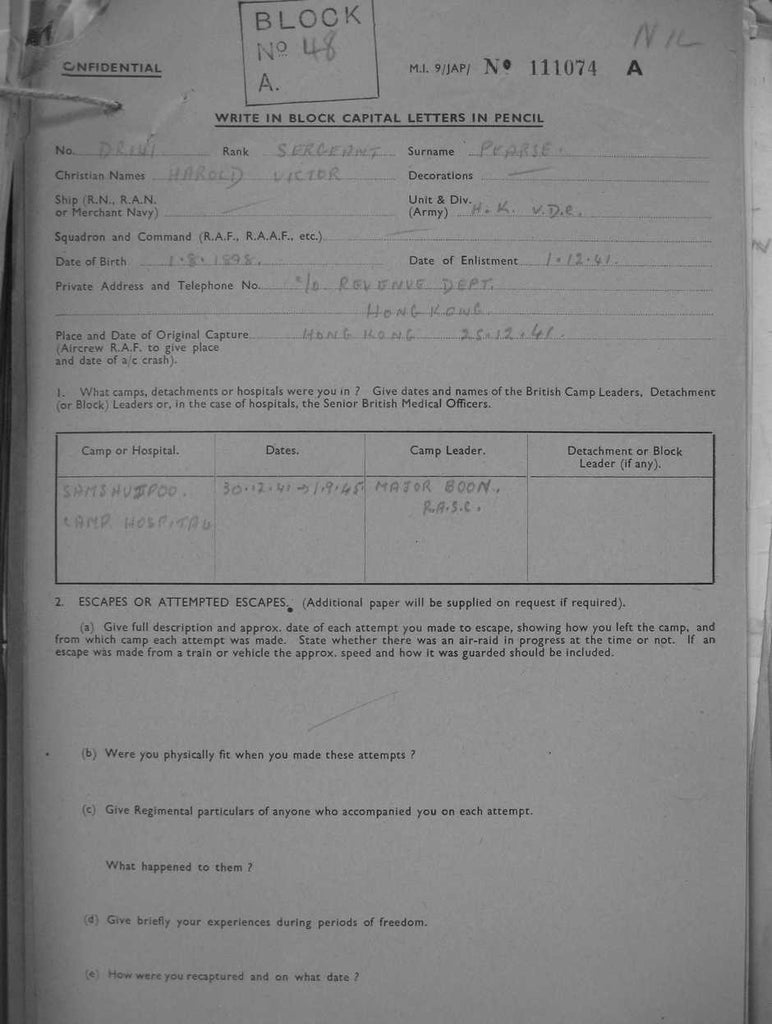 BLOCK
Nº 48
A.
NIL
CONFIDENTIAL
M.I. 9/JAP/ Nº 111074 A
WRITE IN BLOCK CAPITAL LETTERS IN PENCIL
No. Rank SERGEANT Surname PEARSE.
Christian Names HAROLD VICTOR Decorations —
Ship (R.N., R.A.N. or Merchant Navy) — Unit & Div. (Army) H.K. V.D.C.
Squadron and Command (R.A.F., R.A.A.F., etc.) —
Date of Birth 1.8.1898. Date of Enlistment 1.12.41.
Private Address and Telephone No. c/o REVENUE DEPT.
HONG KONG.
Place and Date of Original Capture HONG KONG 25.12.41.
(Aircrew R.A.F. to give place
and date of a/c crash).
1. What camps, detachments or hospitals were you in ? Give dates and names of the British Camp Leaders, Detachment
(or Block) Leaders or, in the case of hospitals, the Senior British Medical Officers.
Camp or Hospital. Dates. Camp Leader. Detachment or Block Leader (if any).
SAMSHUIPOO. 30.12.41 → 1.9.45 MAJOR BOON.
R.A.S.C.
CAMP HOSPITAL
2. ESCAPES OR ATTEMPTED ESCAPES. (Additional paper will be supplied on request if required).
(a) Give full description and approx. date of each attempt you made to escape, showing how you left the camp, and
from which camp each attempt was made. State whether there was an air-raid in progress at the time or not. If an
escape was made from a train or vehicle the approx. speed and how it was guarded should be included.
(b) Were you physically fit when you made these attempts ?
(c) Give Regimental particulars of anyone who accompanied you on each attempt.
What happened to them ?
(d) Give briefly your experiences during periods of freedom.
(e) How were you recaptured and on what date ?